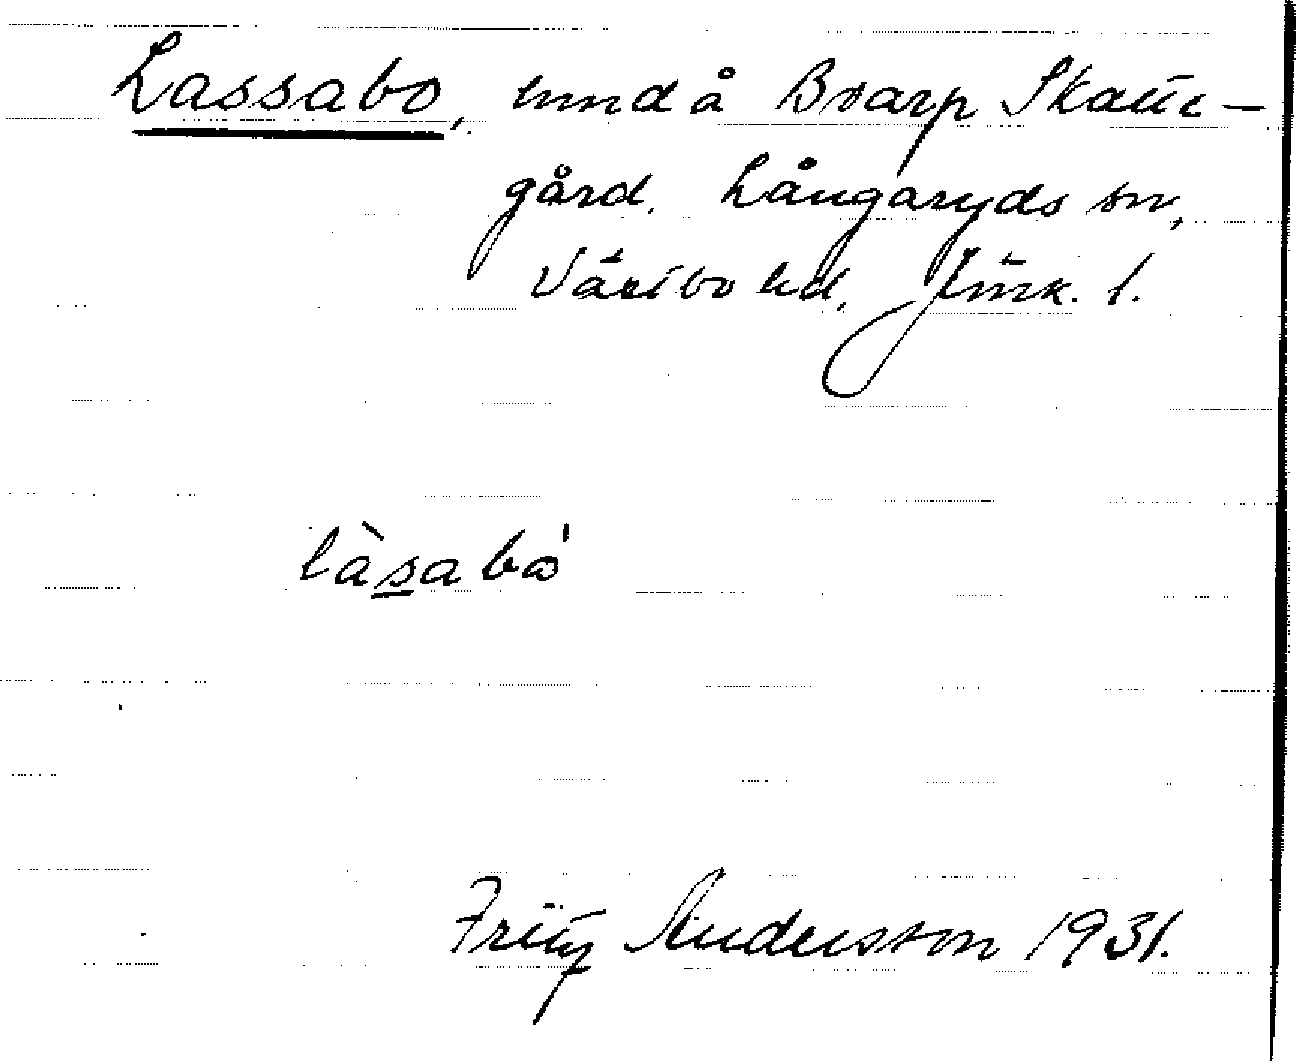 Lassabo, lund å Boarp Skatte-
gård. Långaryds sn,
Västbo hd, Jönk. l.
làsabó
Fritz Andersson 1931.